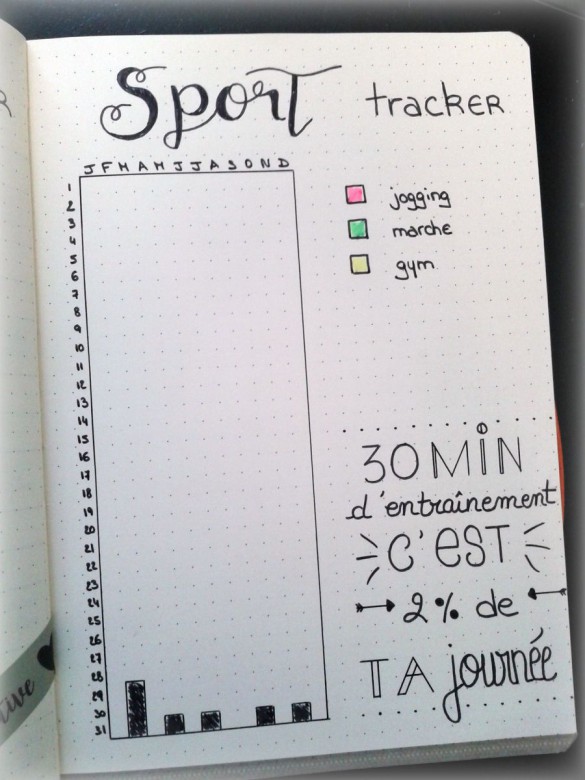 Sport tracker
J F M A M J J A S O N D
1
2
3
4
5
6
7
8
9
10
11
12
13
14
15
16
17
18
19
20
21
22
23
24
25
26
27
28
29
30
31
jogging
marche
gym
30 MiN
d'entraînement
C'EST
2% de
TA journée